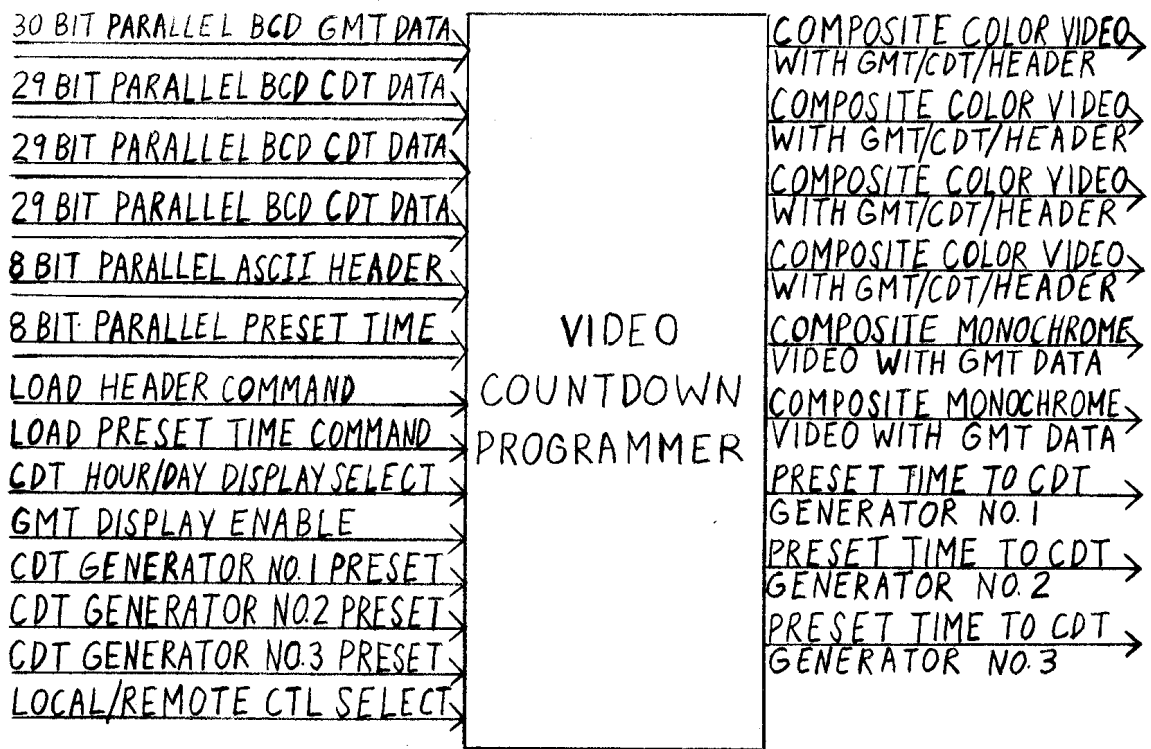 30 BIT PARALLEL BCD GMT DATA
29 BIT PARALLEL BCD CDT DATA
29 BIT PARALLEL BCD CDT DATA
29 BIT PARALLEL BCD CDT DATA
8 BIT PARALLEL ASCII HEADER
8 BIT PARALLEL PRESET TIME
LOAD HEADER COMMAND
LOAD PRESET TIME COMMAND
CDT HOUR/DAY DISPLAY SELECT
GMT DISPLAY ENABLE
CDT GENERATOR NO. 1 PRESET
CDT GENERATOR NO.2 PRESET
CDT GENERATOR NO.3 PRESET
LOCAL/REMOTE CTL SELECT
VIDEO
COUNTDOWN
PROGRAMMER
COMPOSITE COLOR VIDEO
WITH GMT/CDT/HEADER
COMPOSITE COLOR VIDEO
WITH GMT/CDT/HEADER
COMPOSITE COLOR VIDEO
WITH GMT/CDT/HEADER
COMPOSITE COLOR VIDEO
WITH GMT/CDT/HEADER
COMPOSITE MONOCHROME
VIDEO WITH GMT DATA
COMPOSITE MONOCHROME
VIDEO WITH GMT DATA
PRESET TIME TO CDT
GENERATOR NO. 1
PRESET TIME TO CDT
GENERATOR NO. 2
PRESET TIME TO CDT
GENERATOR NO. 3